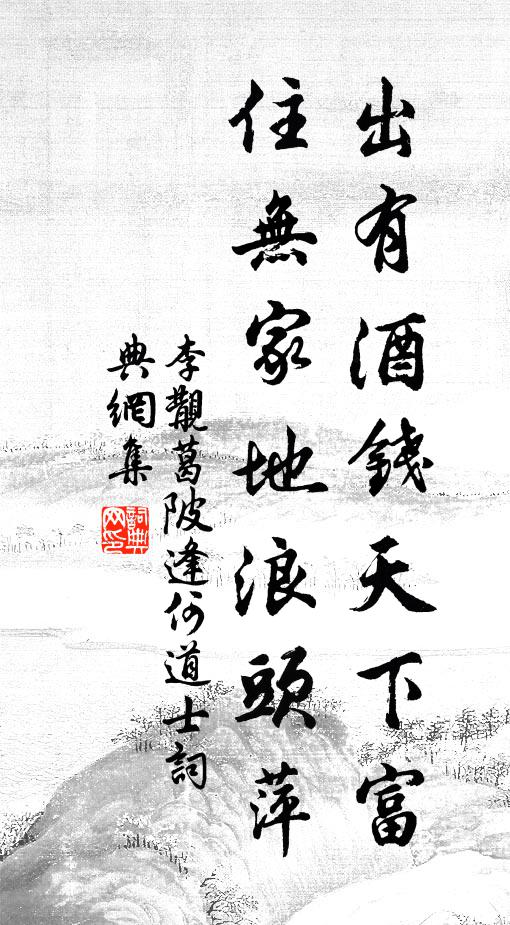 出有酒錢天下富
住無家地浪頭萍
李觀葛陂逢何道士詞
典網集
詞典網印